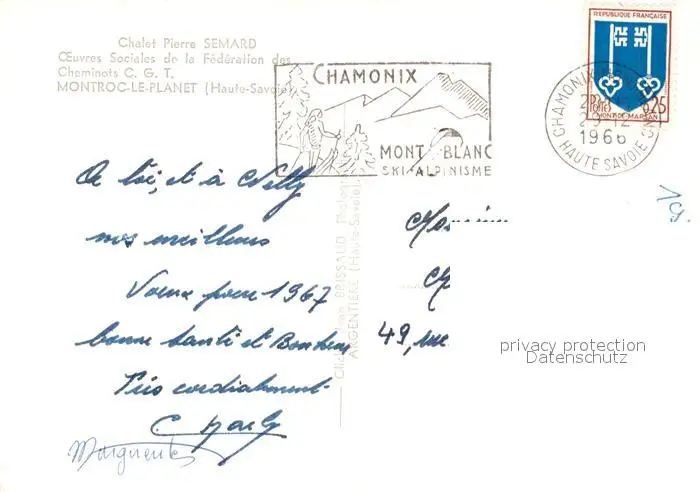 Chalet Pierre SEMARD
Œuvres Sociales de la Fédération des
Cheminots C. G. T.
MONTROC-LE-PLANET (Haute-Savoie)
CHAMONIX
MONT BLANC
SKI-ALPINISME
REPUBLIQUE FRANÇAISE
POSTES 0,25
MONT-DE-MARSAN
CHAMONIX
29-12
1966
HAUTE SAVOIE
19.
A toi, et à Nelly
nos meilleurs
Voeux pour 1967
bonne santé et Bonheur
Très cordialement
Marguerite
BRISSAUD
ARGENTIERE (Haute-Savoie)
49, rue
privacy protection
Datenschutz